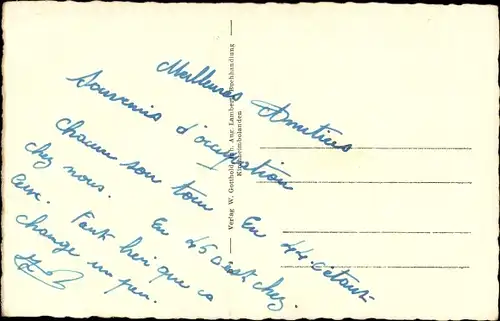 Meilleures Amitiés
Souvenirs d'occupation
Chacun son tour En 44 c'était
chez nous. En 45 c'est chez
eux. Faut bien que ça
change un peu.
Verlag W. Gotthold, Inh. Aug. Lamberg, Buchhandlung
Kirchheimbolanden